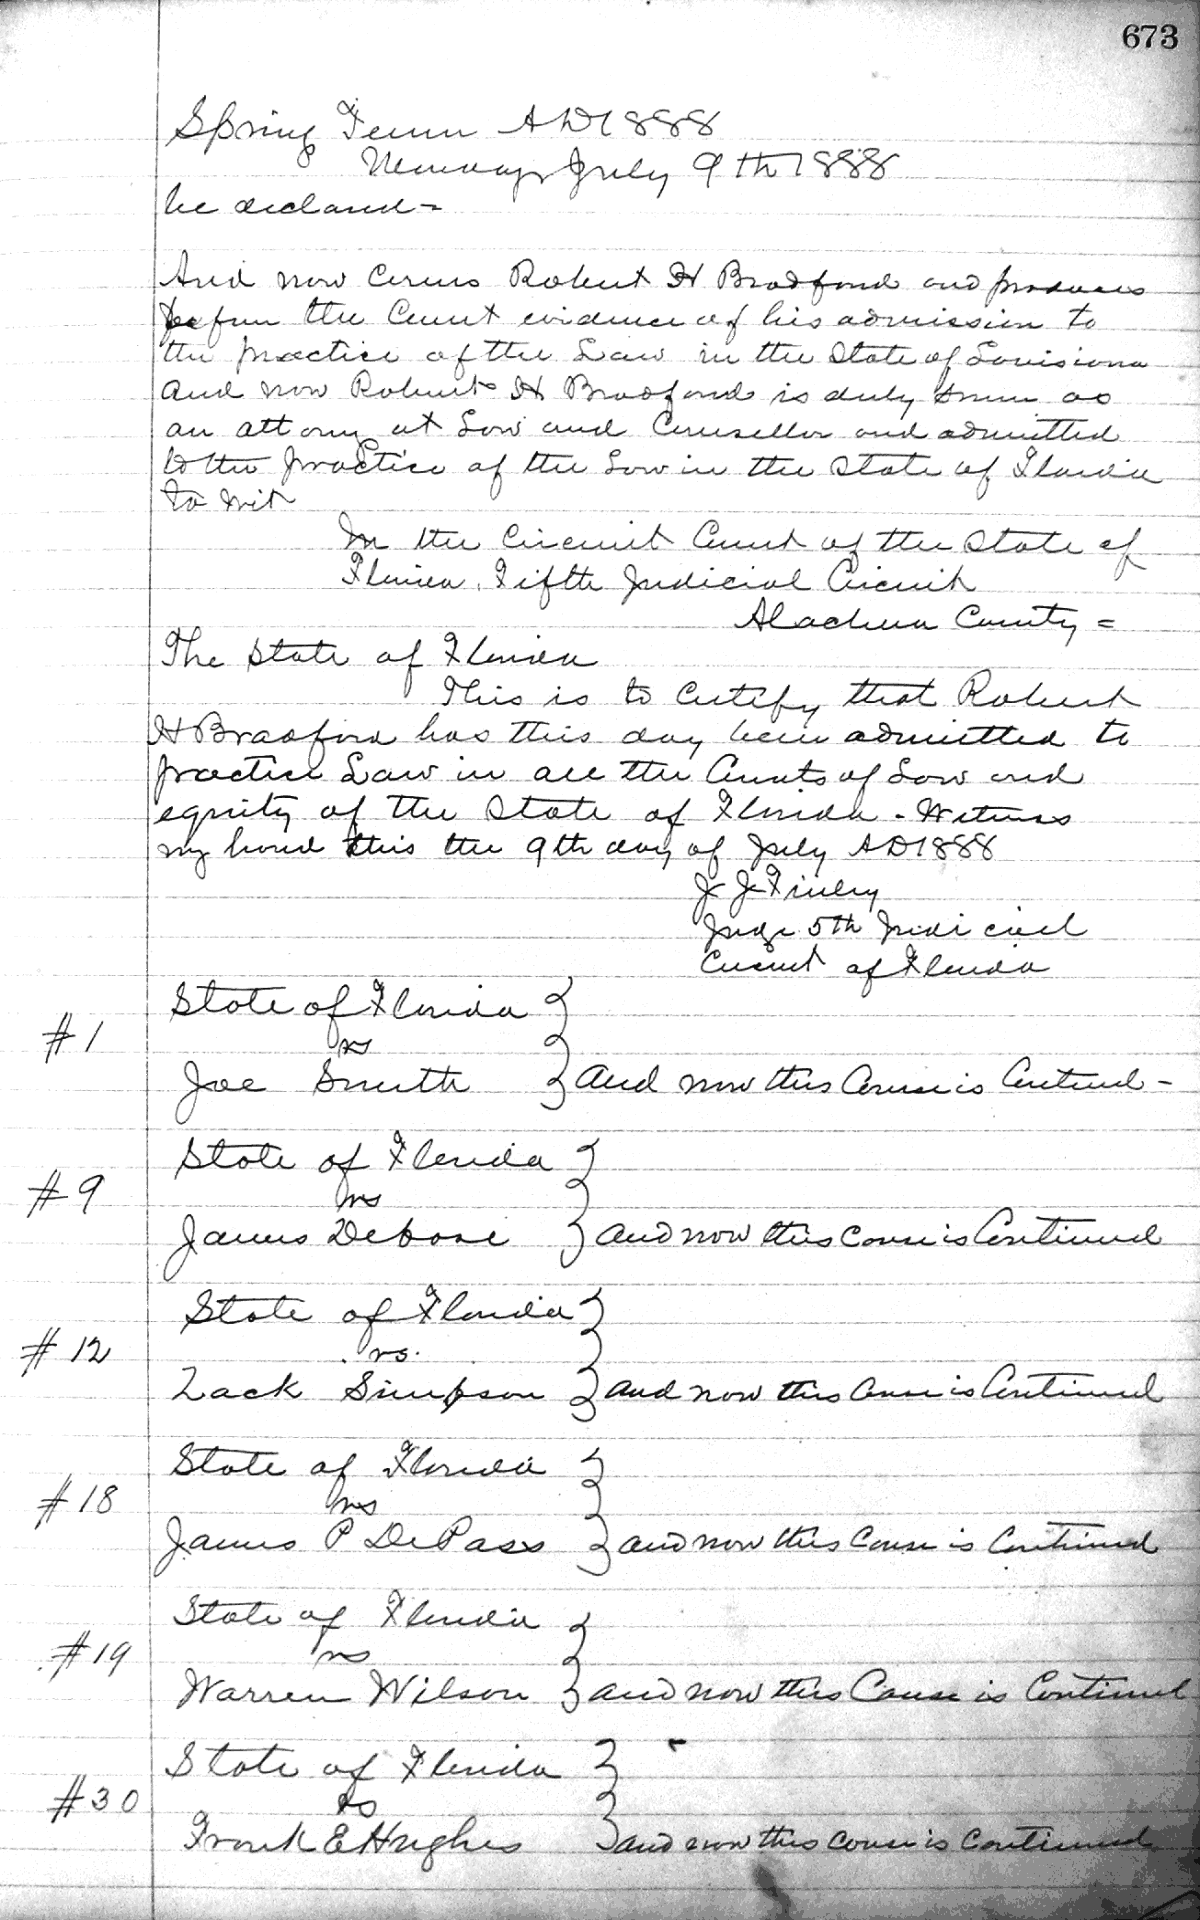 673
Spring Term A D 1888
Monday July 9th 1888
be declared =
And now comes Robert H Bradford and produces
before the Court evidence of his admission to
the practice of the Law in the State of Louisiana
and now Robert H Bradford is duly sworn as
an attorney at Law and Counsellor and admitted
to the practice of the Law in the State of Florida
to wit
In the Circuit Court of the State of
Florida, Fifth Judicial Circuit
Alachua County =
The State of Florida
This is to certify that Robert
H Bradford has this day been admitted to
practice Law in all the Courts of Law and
equity of the State of Florida - Witness
my hand this the 9th day of July AD 1888
J J Finley
Judge 5th Judicial
Circuit of Florida
State of Florida }
#1 vs
Joe Smith } and now this Cause is Continued -
State of Florida }
#9 vs
James Debose } and now this cause is Continued
State of Florida }
#12 vs.
Zack Simpson } and now this cause is Continued
State of Florida }
#18 vs
James P DePass } and now this Cause is Continued
State of Florida }
#19 vs
Warren Wilson } and now this Cause is Continued
State of Florida }
#30 vs
Frank E Hughes } and now this cause is continued